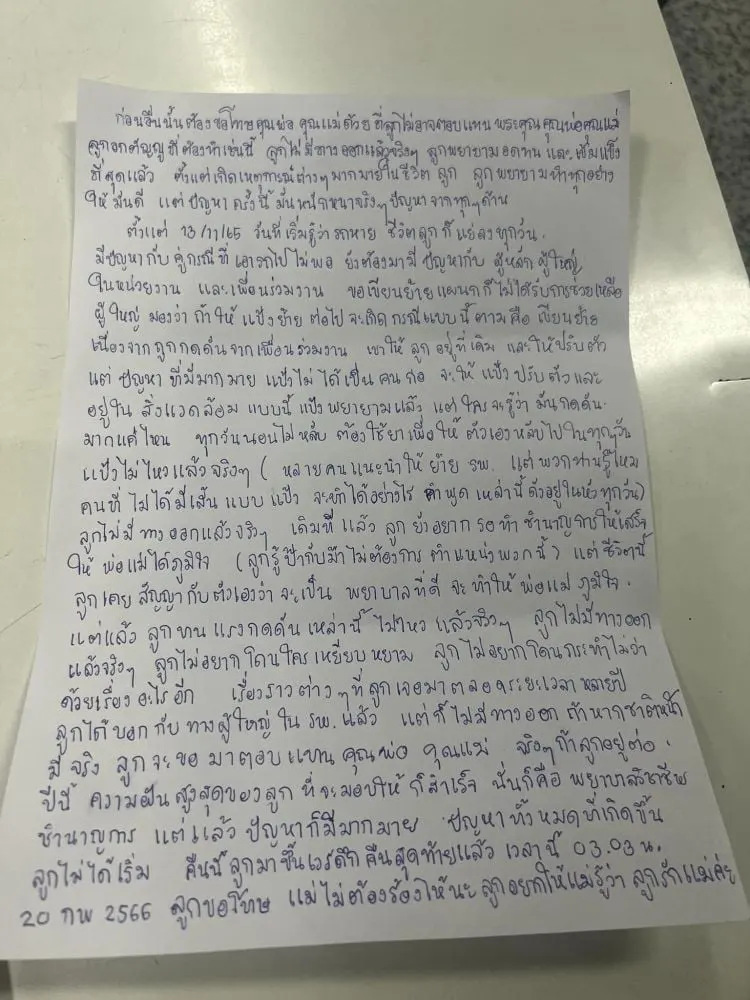 ก่อนอื่นนั้นต้องขอโทษคุณพ่อ คุณแม่ด้วย ที่ลูกไม่อาจตอบแทน พระคุณคุณพ่อคุณแม่
ลูกอกตัญญู ที่ต้องทำเช่นนี้ ลูกไม่มีทางออกแล้วจริงๆ ลูกพยายามอดทน และเข้มแข็ง
ที่สุดแล้ว ตั้งแต่เกิดเหตุการณ์ต่างๆมากมายในชีวิต ลูก ลูกพยายามทำทุกอย่าง
ให้มันดี แต่ ปัญหา ครั้งนี้ มันหนักหนาจริงๆ ปัญหาจากทุกๆด้าน
ตั้งแต่ 13/11/65 วันที่เริ่มรู้ว่ารถหาย ชีวิตลูกก็แย่ลงทุกวัน.
มีปัญหากับ คู่กรณีที่ เอารถไปไม่พอ ยังต้องมามีปัญหากับ ผู้หลักผู้ใหญ่
ในหน่วยงาน และเพื่อนร่วมงาน ขอเขียนย้ายแผนกก็ไม่ได้รับการช่วยเหลือ
ผู้ใหญ่ มองว่า ถ้าให้ แป้งย้าย ต่อไปจะเกิดกรณีแบบนี้ตามคือ เขียนย้าย
เนื่องจากถูกกดดันจากเพื่อนร่วมงาน เขาให้ ลูกอยู่ที่เดิม และให้ปรับตัว
แต่ ปัญหา ที่มีมากมาย แป้งไม่ได้เป็นคนก่อ จะให้ แป้งปรับตัวและ
อยู่ใน สิ่งแวดล้อม แบบนี้ แป้งพยายามแล้ว แต่ใครจะรู้ว่า มันกดดัน.
มากแค่ไหน ทุกวันนอนไม่หลับ ต้องใช้ยาเพื่อให้ ตัวเองหลับไปในทุกๆวัน
แป้งไม่ไหวแล้วจริงๆ ( หลายคนแนะนำให้ย้าย รพ. แต่พวกท่านรู้ไหม
คนที่ ไม่ได้มีเส้น แบบ แป้ง จะทำได้อย่างไร คำพูด เหล่านี้ ดังอยู่ในหัวทุกวัน)
ลูกไม่มีทางออกแล้วจริงๆ เดิมทีแล้ว ลูกยังอยาก รอทำ ชำนาญการให้เสร็จ
ให้ พ่อแม่ได้ภูมิใจ (ลูกรู้ ป๊ากับม๊าไม่ต้องการ ตำแหน่งพวกนี้) แต่ชีวิตนี้
ลูกเคย สัญญากับตัวเองว่า จะเป็น พยาบาลที่ดี จะทำให้ พ่อแม่ ภูมิใจ.
แต่แล้ว ลูกทนแรงกดดัน เหล่านี้ ไม่ไหว แล้วจริงๆ ลูกไม่มีทางออก
แล้วจริงๆ ลูกไม่อยากโดนใครเหยียบหยาม ลูกไม่อยากโดนกระทำไม่ว่า
ด้วยเรื่องอะไรอีก เรื่องราวต่างๆที่ลูกเจอมาตลอดระยะเวลา หลายปี
ลูกได้บอกกับ ทางผู้ใหญ่ใน รพ. แล้ว แต่ก็ไม่มีทางออก ถ้าหากชาติหน้า
มี จริง ลูกจะขอ มาตอบแทน คุณพ่อ คุณแม่ จริงๆถ้าลูกอยู่ต่อ.
ปีนี้ ความฝันสูงสุดของลูก ที่จะมอบให้ ก็สำเร็จ นั่นก็คือ พยาบาลวิชาชีพ
ชำนาญการ แต่แล้ว ปัญหาก็มีมากมาย ปัญหาทั้งหมดที่เกิดขึ้น
ลูกไม่ได้เริ่ม คืนนี้ ลูกมาขึ้นเวรดึกคืนสุดท้ายแล้ว เวลานี้ 03.03 น.
20 กพ 2566 ลูกขอโทษ แม่ไม่ต้องร้องไห้นะ ลูกอยากให้แม่รู้ว่า ลูกรักแม่ค่ะ